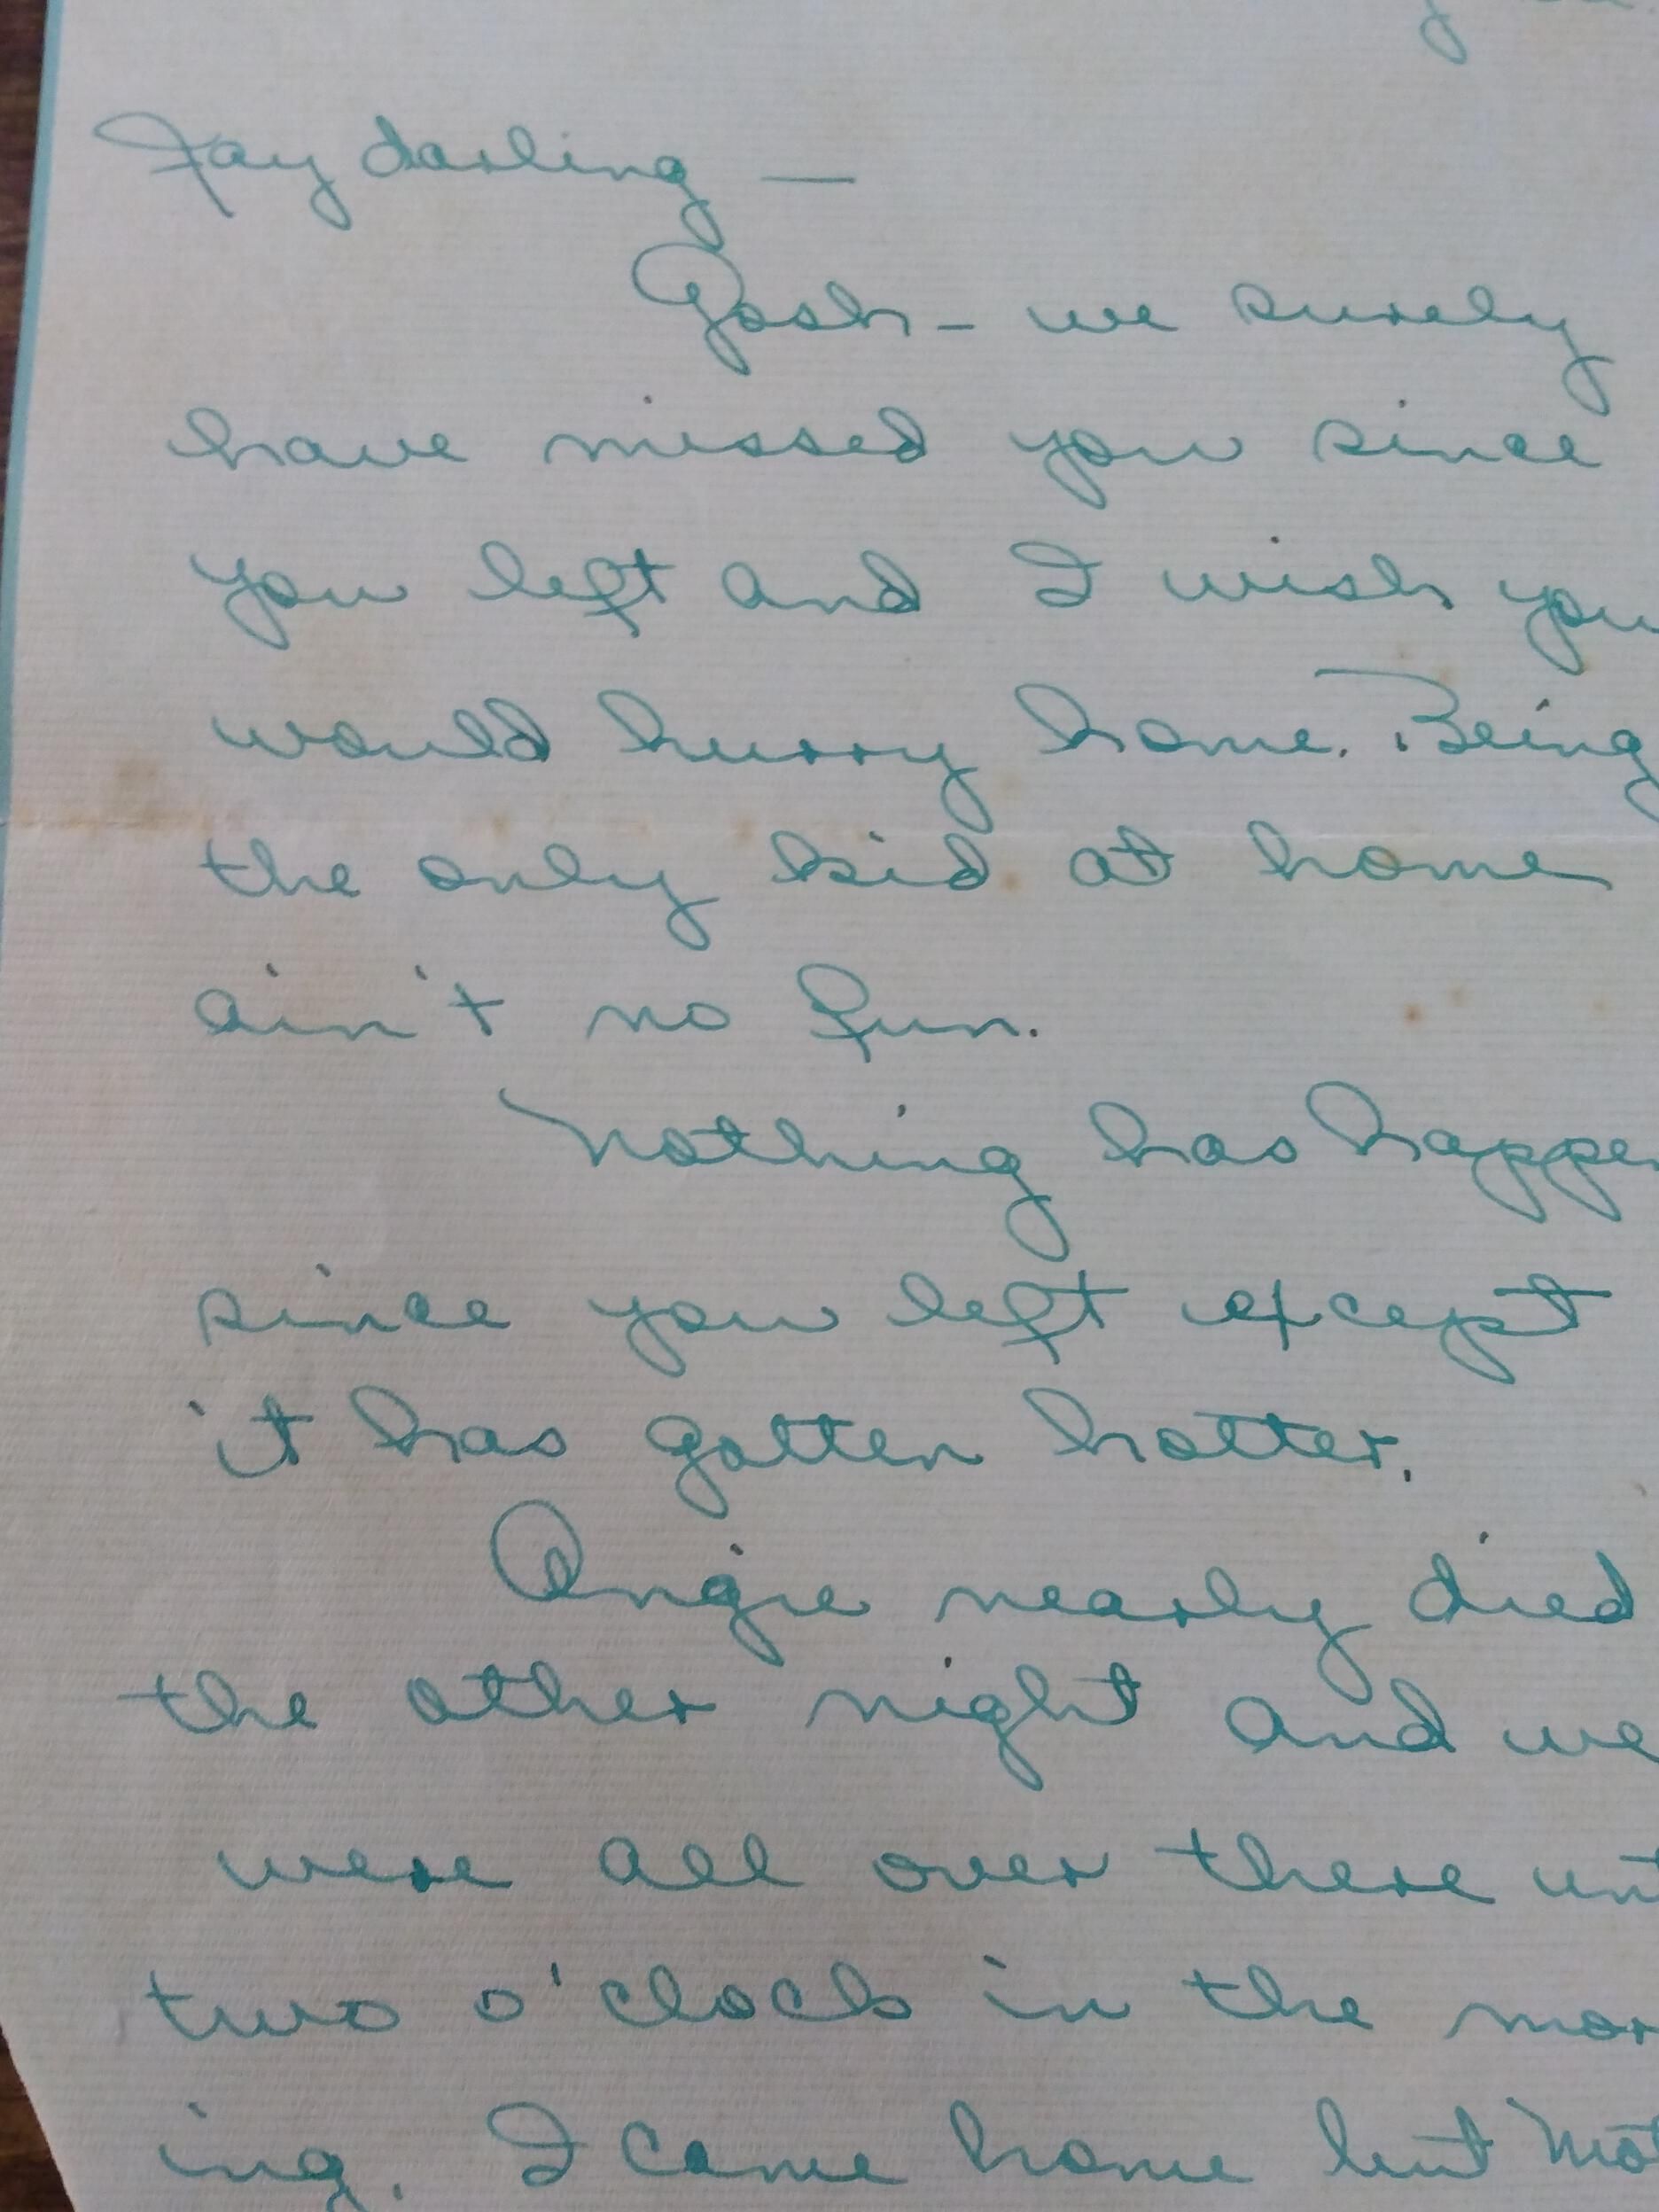 Fay darling —
Gosh - we surely
have missed you since
you left and I wish you
would hurry home. Being
the only kid at home
ain't no fun.
Nothing has happe
since you left except
it has gotten hotter.
Angie nearly died
the other night and we
were all over there unt
two o'clock in the mor
ing. I came home but Mot